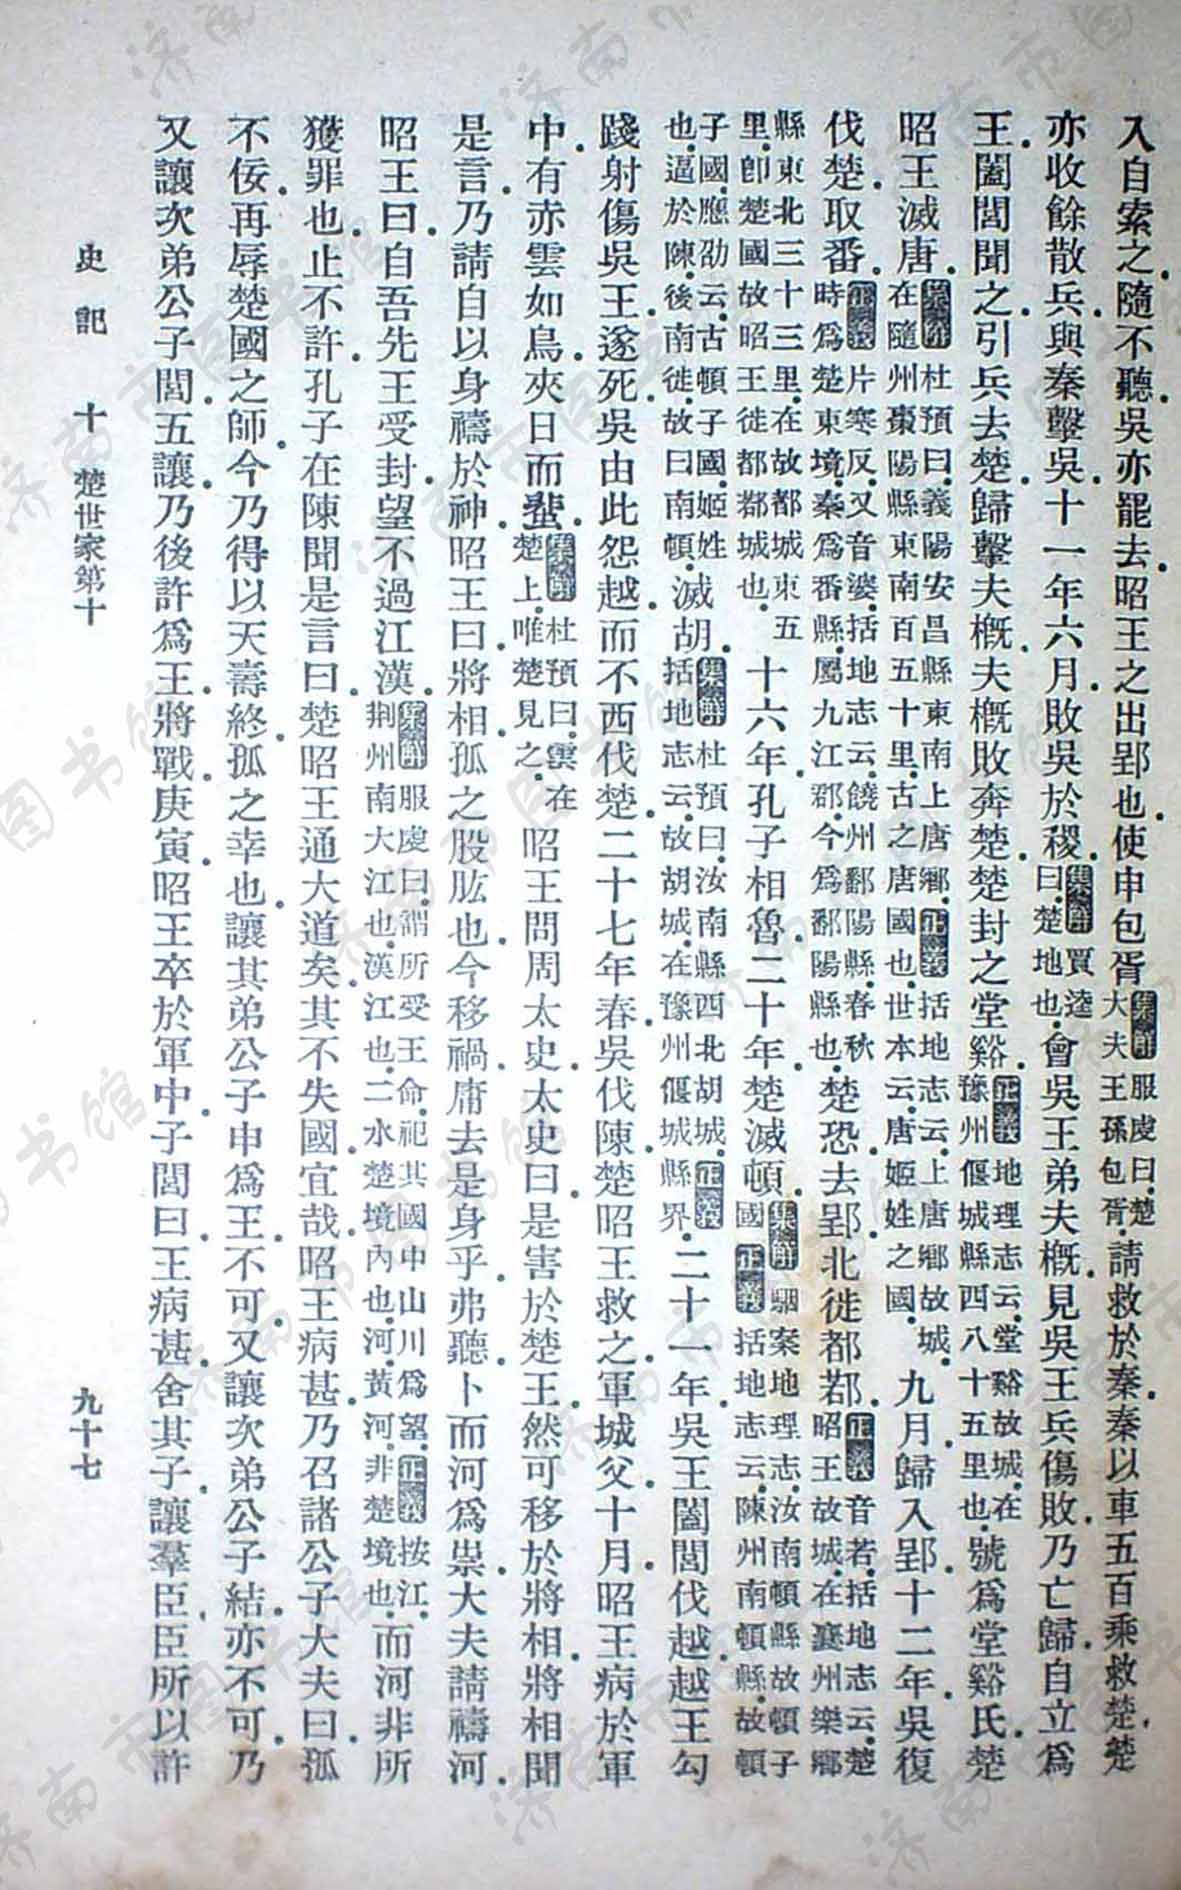 入自索之隨不聽吳亦罷去昭王之出郢也使申包胥集解服虔曰楚大夫王孫包胥請救於秦秦以車五百乘救楚楚
亦收餘散兵與秦擊吳十一年六月敗吳於稷集解賈逵曰楚地也會吳王弟夫概見吳王兵傷敗乃亡歸自立爲
王闔閭聞之引兵去楚歸擊夫概夫概敗奔楚楚封之堂谿正義地理志云堂谿故城在豫州偃城縣西八十五里也號爲堂谿氏楚
昭王滅唐集解杜預曰義陽安昌縣東南上唐鄉正義括地志云上唐鄉故城在隨州棗陽縣東南百五十里古之唐國也世本云唐姬姓之國九月歸入郢十二年吳復
伐楚取番正義片寒反又音婆括地志云饒州鄱陽縣春秋時爲楚東境秦爲番縣屬九江郡今爲鄱陽縣也楚恐去郢北徙都鄀正義音若括地志云楚昭王故城在襄州樂鄉
縣東北三十三里在故都城東五里卽楚國故昭王徙都鄀城也十六年孔子相魯二十年楚滅頓集解駰案地理志汝南頓縣故頓子國正義括地志云陳州南頓縣故頓
子國應劭云古頓子國姬姓也逼於陳後南徙故曰南頓滅胡集解杜預曰汝南縣西北胡城正義括地志云故胡城在豫州偃城縣界二十一年吳王闔閭伐越越王勾
踐射傷吳王遂死吳由此怨越而不西伐楚二十七年春吳伐陳楚昭王救之軍城父十月昭王病於軍
中有赤雲如鳥夾日而蜚集解杜預曰雲在楚上唯楚見之昭王問周太史太史曰是害於楚王然可移於將相將相聞
是言乃請自以身禱於神昭王曰將相孤之股肱也今移禍庸去是身乎弗聽卜而河爲祟大夫請禱河
昭王曰自吾先王受封望不過江漢集解服虔曰謂所受王命祀其國中山川爲望正義按江荆州南大江也漢江也二水楚境內也河黃河非楚境也而河非所
獲罪也止不許孔子在陳聞是言曰楚昭王通大道矣其不失國宜哉昭王病甚乃召諸公子大夫曰孤
不佞再辱楚國之師今乃得以天壽終孤之幸也讓其弟公子申爲王不可又讓次弟公子結亦不可乃
又讓次弟公子閭五讓乃後許爲王將戰庚寅昭王卒於軍中子閭曰王病甚舍其子讓羣臣臣所以許
史記 十 楚世家第十 九十七
济南市图书馆